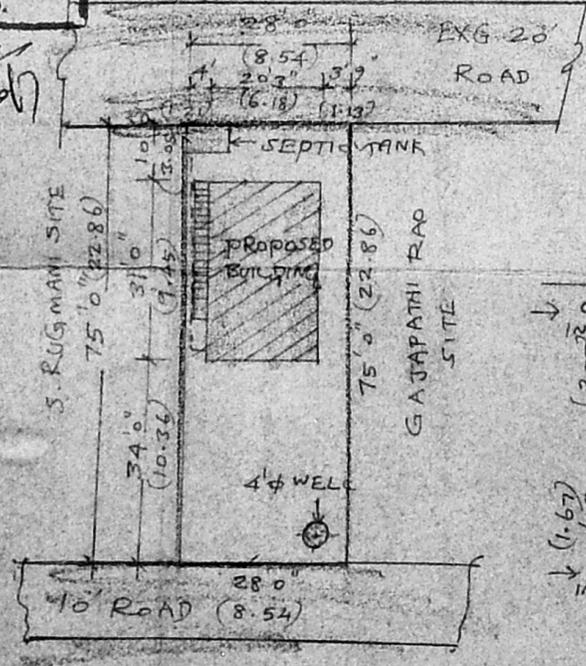 28'0"
(8.54)
EXG 20'
ROAD
4'
20'3"
3'9"
(6.18)
(1.13)
SEPTIC TANK
10'
(3.05)
S. RUGMANI SITE
75'0" (22.86)
31'0"
(9.45)
PROPOSED
BUILDING
75'0" (22.86)
GAJAPATHI RAO
SITE
34'0"
(10.36)
4'φ WELL
28'0"
10' ROAD (8.54)
(1.67)